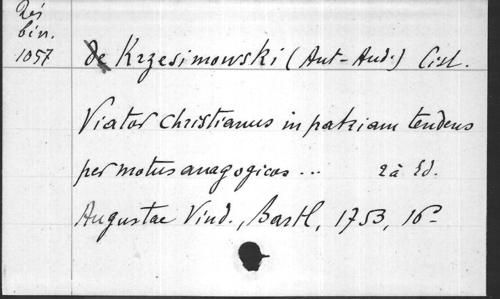 Rés
bin.
1057
de Krzesimowski (Ant-And.) Cist.
Viator Christianus in patriam tendens
per motus anagogicos ... 2à Ed.
Augustae Vind., Bartl, 1753, 16º